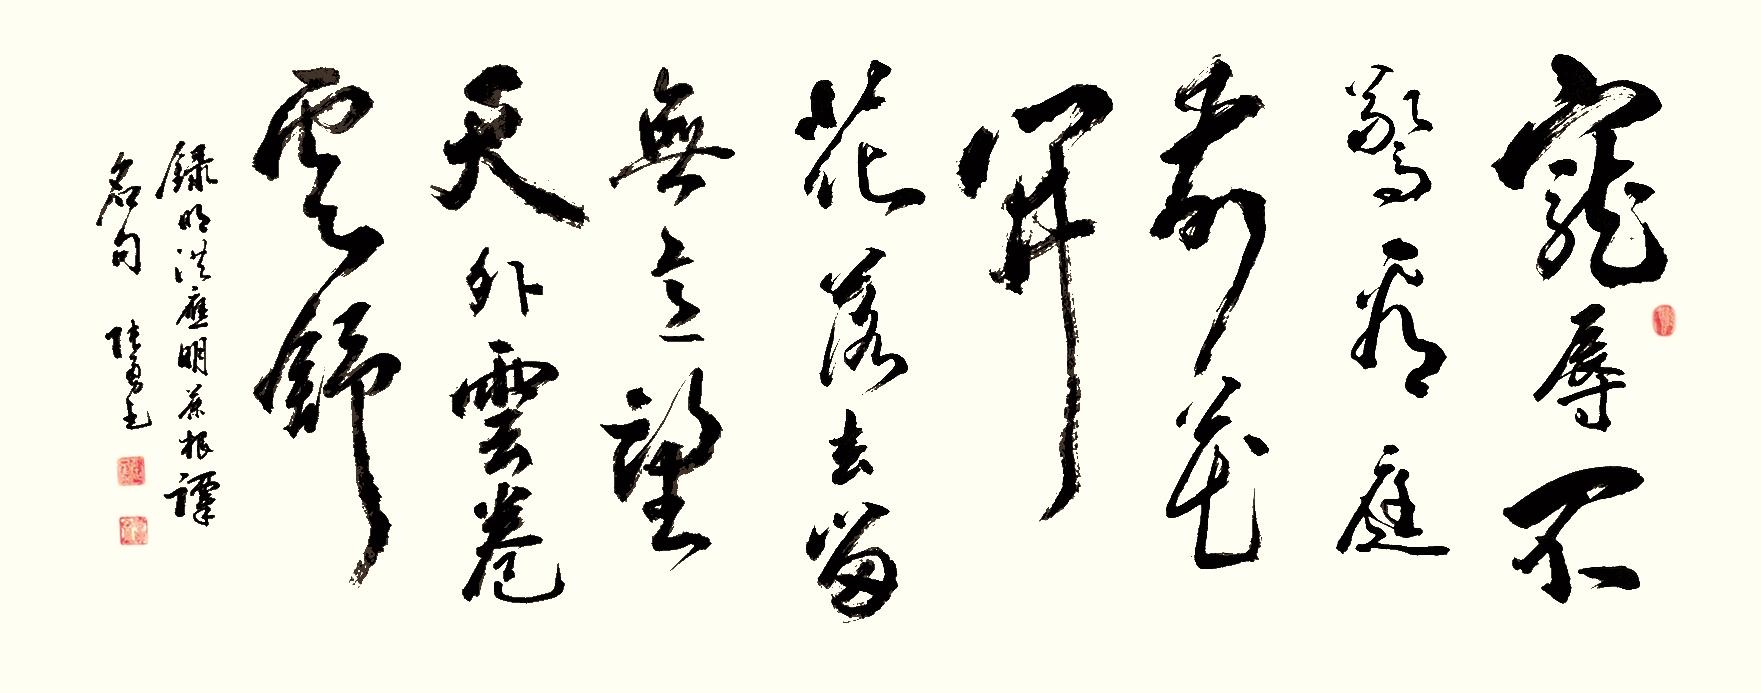 寵辱不
驚看庭
前花
開
花落去留
無意望
天外雲卷
雲舒
錄明洪應明菜根譚
名句